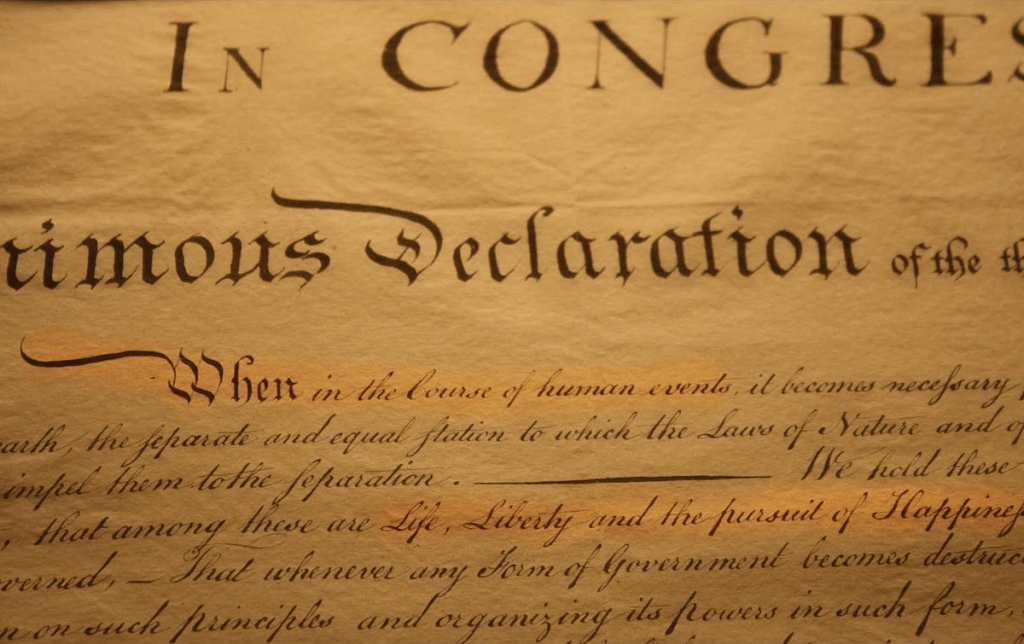 IN CONGRES
nimous Declaration of the th
When in the Course of human events, it becomes neceſsary
earth, the ſeparate and equal ſtation to which the Laws of Nature and of
impel them to the ſeparation. ——— We hold these
, that among these are Life, Liberty and the pursuit of Happineſs
verned, — That whenever any Form of Government becomes destruc
n on such principles and organizing its powers in such form,